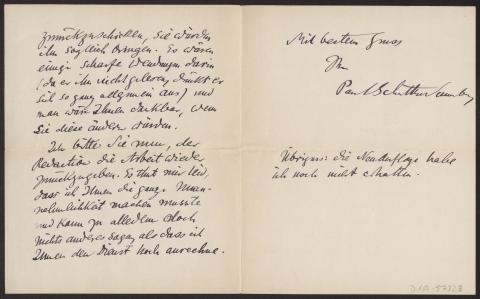 zurückzuschicken, Sie würden
ihn sogleich bringen. Es wären
einige scharfe Wendungen darin
(da er ihn nicht gelesen, drückt er
sich so ganz allgemein aus) und
man wäre Ihnen dankbar, wenn
Sie diese ändern würden.
Ich bitte Sie nun, der
Redaction die Arbeit wieder
zurückzugeben. Es thut mir leid,
dass ich Ihnen die ganze Unan-
nehmlichkeit machen musste
und kann zu alledem doch
nichts anderes sagen als dass ich
Ihnen den Dienst hoch anrechne.
Mit bestem Gruss
Ihr
Paul Schultze Naumburg
Übrigens: die Neuauflage habe
ich noch nicht erhalten.